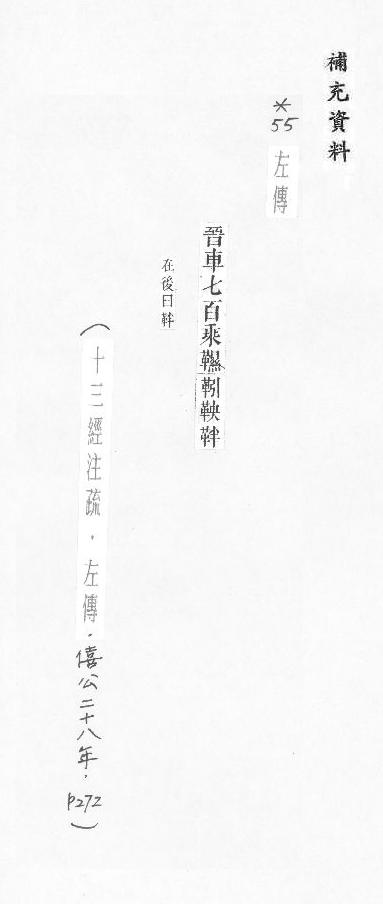 補充資料
*55 左傳
晉車七百乘韅靷鞅靽
在後曰靽
(十三經注疏．左傳．僖公二十八年，P272)